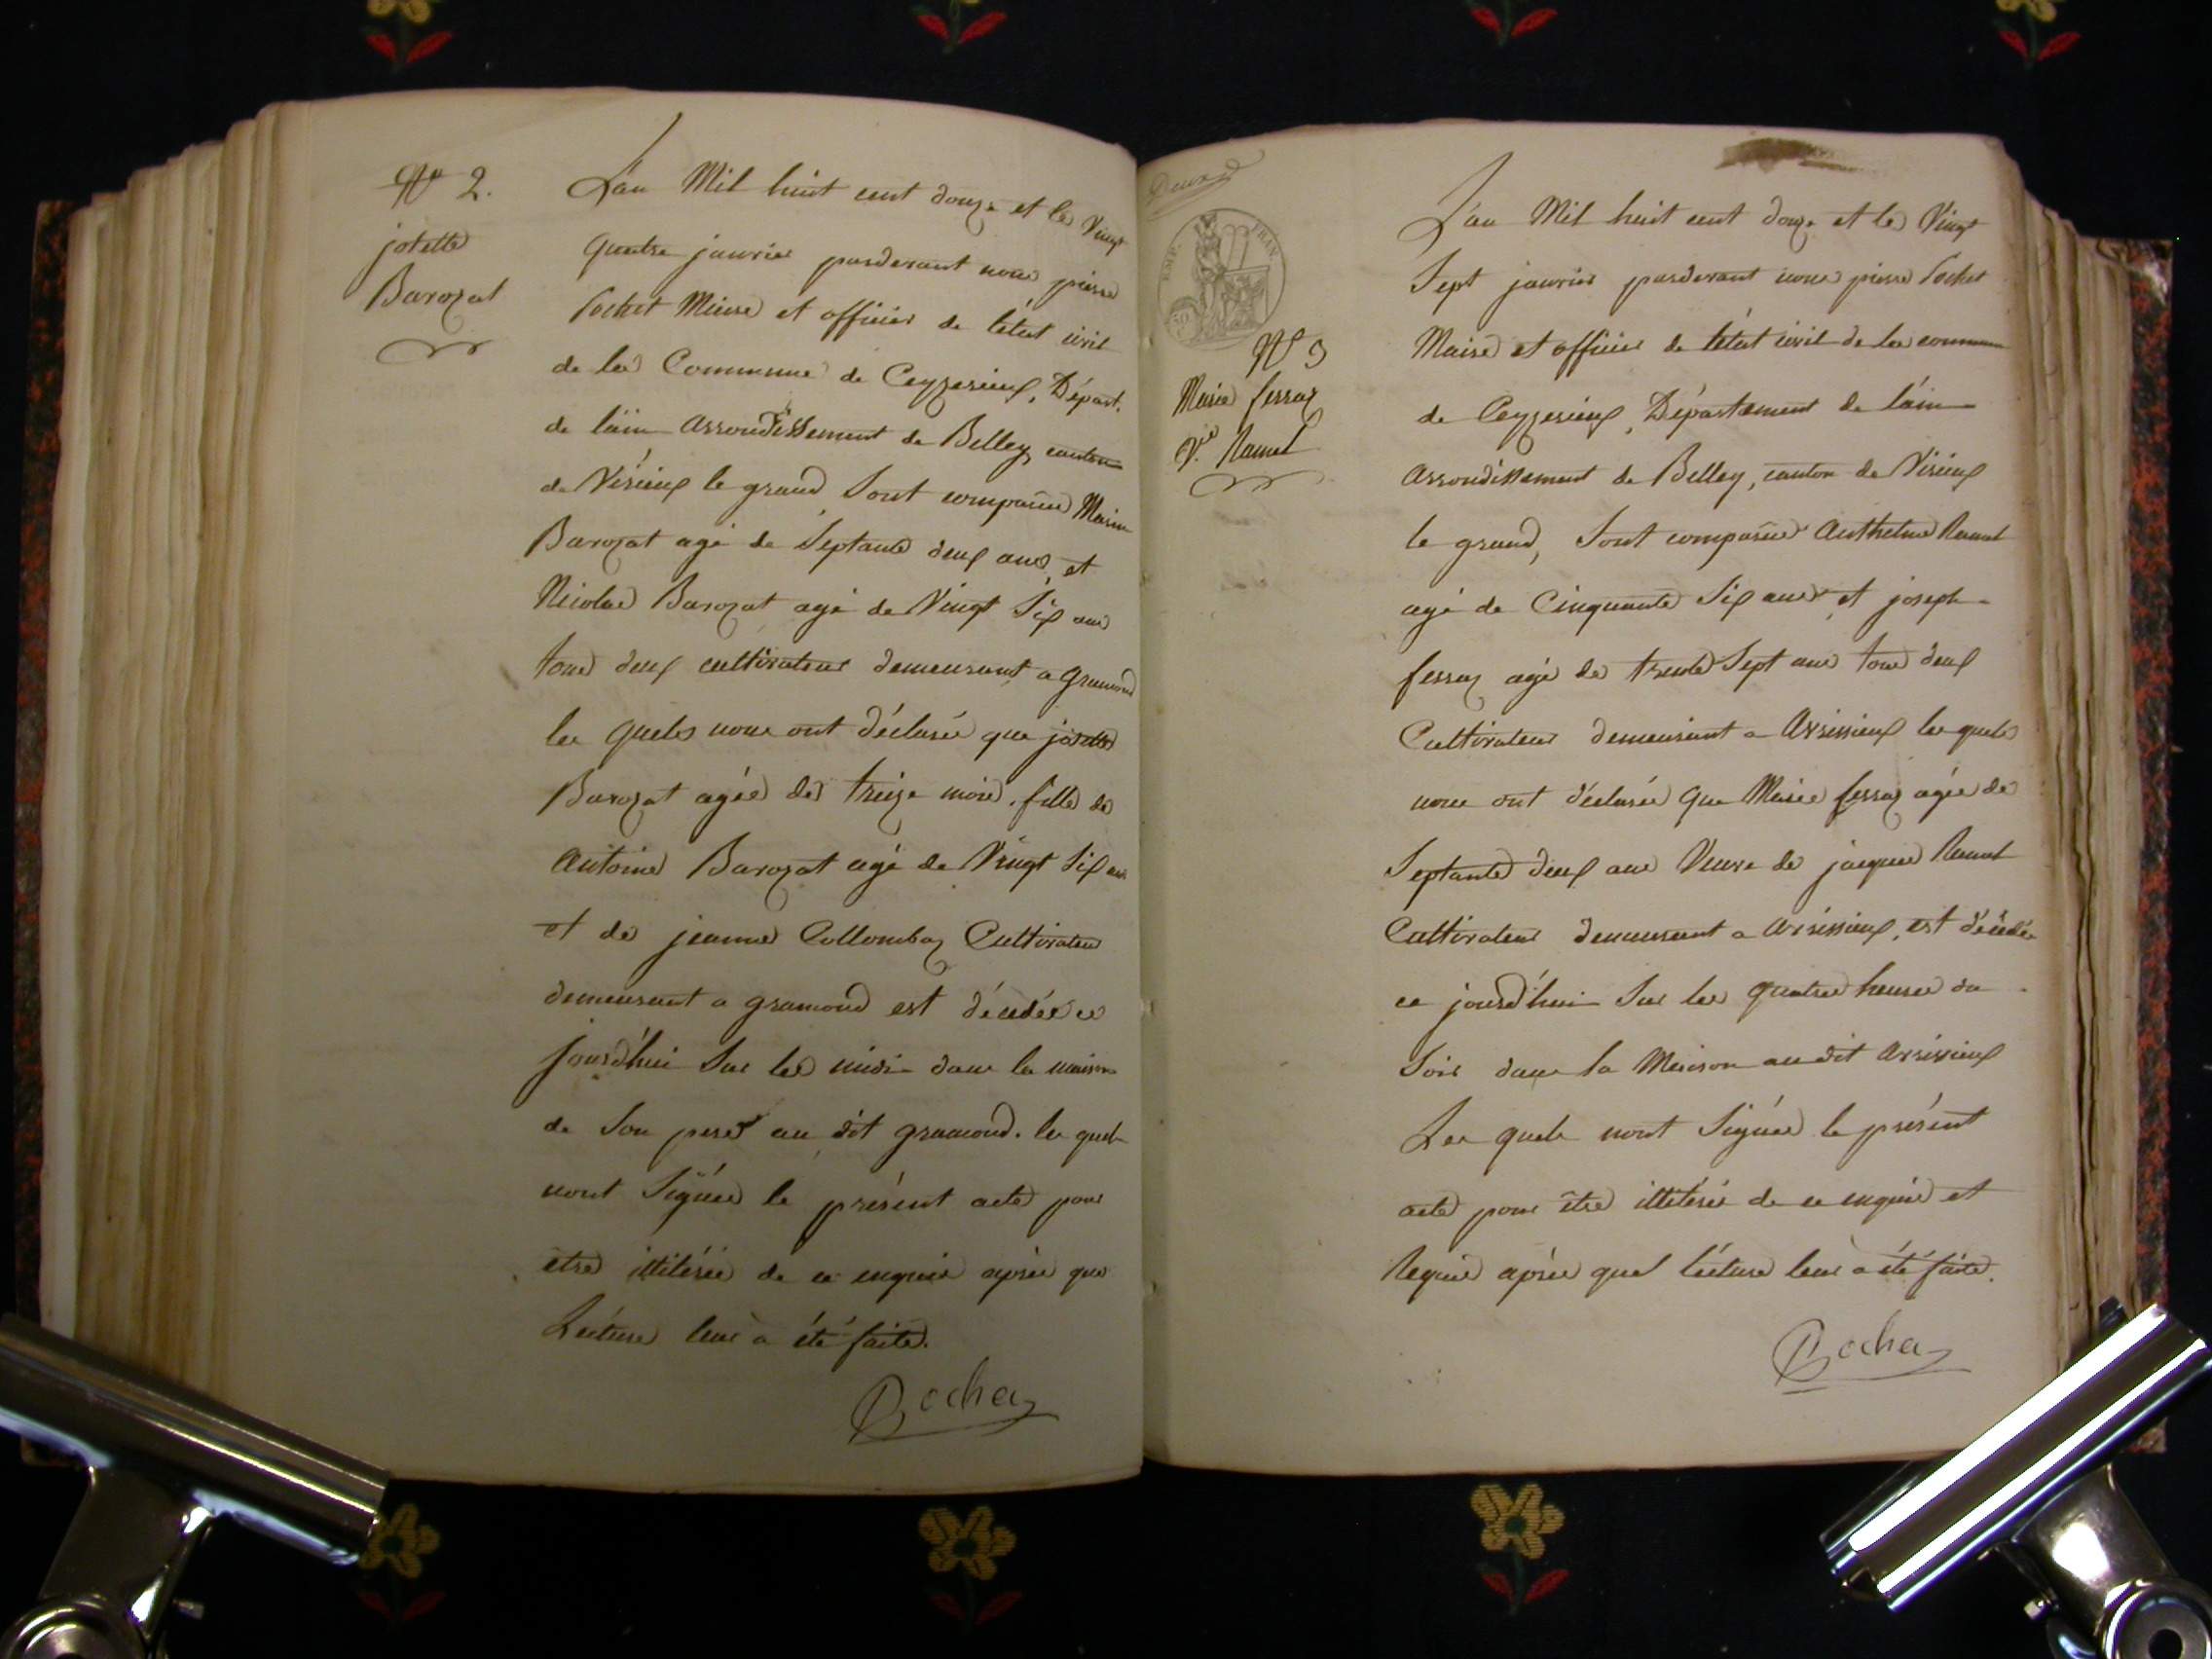 N° 2.
josette
Barozat
L'an Mil huit cent douze et le Vingt
quatre janvier pardevant nous pierre
Rochet Maire et officier de l'état civil
de la Commune de Ceyzerieux, Départ.
de l'ain arrondissement de Belley canton
de Virieux le grand, Sont comparus Marin
Barozat agé de Septante deux ans, et
Nicolas Barozat agé de Vingt Six ans
tous deux cultivateurs demeurant a gramond
les quels nous ont déclarés que josette
Barozat agée de treize mois, fille de
Antoine Barozat agé de Vingt Six ans
et de jeanne Collomba Cultivateur
demeurant a gramond est décédée ce
jourd'hui Sur les midi dans la maison
de Son pere au dit gramond. les quels
nont Signés le présent acte pour
etre ittitérés de ce enquis après que
Lecture leur à été faite.
Rochet
EMP. FRAN.
50
N° 3
Marie ferraz
Ve. Ramel
L'an Mil huit cent douze et le Vingt
Sept janvier pardevant nous pierre Rochet
Maire et officier de l'état civil de la commune
de Ceyzerieux, Département de l'ain
arrondissement de Belley, canton de Virieux
le grand, Sont comparus Anthelme Ramel
agé de Cinquante Six ans, et joseph
ferraz agé de trente Sept ans tous deux
Cultivateur demeurant a Avrissieux les quels
nous ont déclarés que Marie ferraz agée de
Septante deux ans Veuve de jacques Ramel
Cultivateur demeurant a avrissieux, est décédée
ce jourd'hui Sur les quatres heures du
Soir dans la Maison au dit avrissieux
Les quels nont Signés le présent
acte pour être ittitérés de ce enquis et
Requis après quel lécture leur a été faite.
Rochet